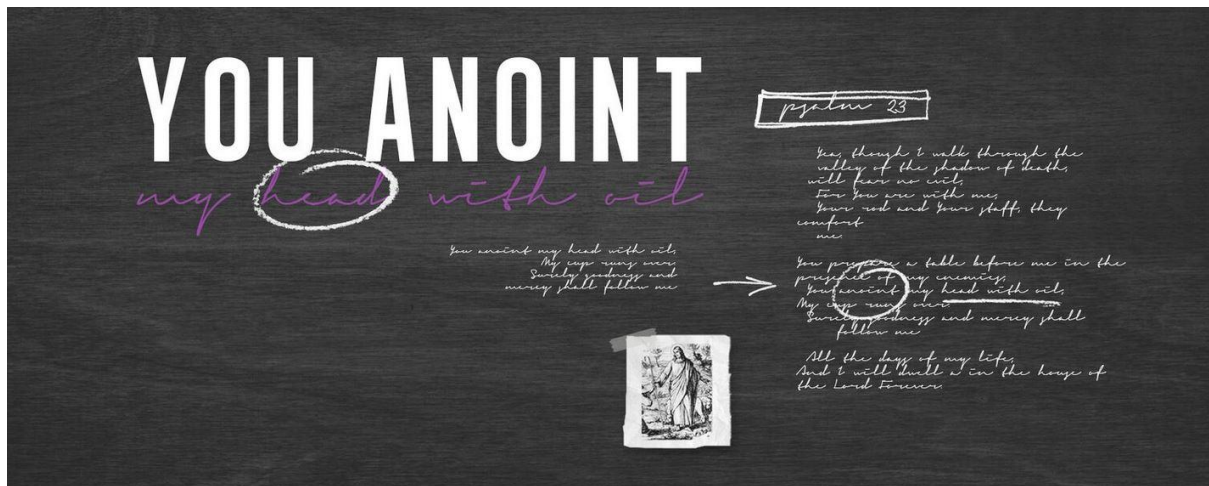 YOU ANOINT
my head with oil
You anoint my head with oil,
My cup runs over
Surely goodness and
mercy shall follow me
psalm 23
Yea, though I walk through the
valley of the shadow of death,
will fear no evil;
For You are with me;
Your rod and Your staff, they
comfort
me.
You prepare a table before me in the
presence of my enemies;
You anoint my head with oil;
My cup runs over.
Surely goodness and mercy shall
follow me
All the days of my life;
And I will dwell a in the house of
the Lord Forever.